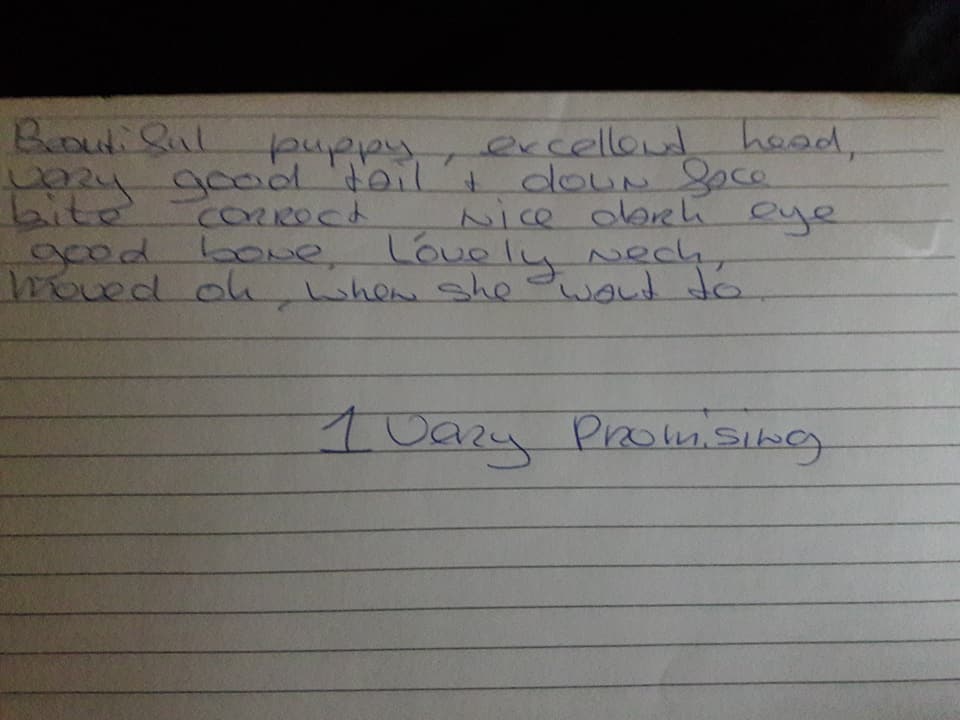 Beautiful puppy, excellent head,
very good tail + down face
bite correct nice dark eye
good bone, Lovely neck,
moved ok, when she want to.
1 Very Promising